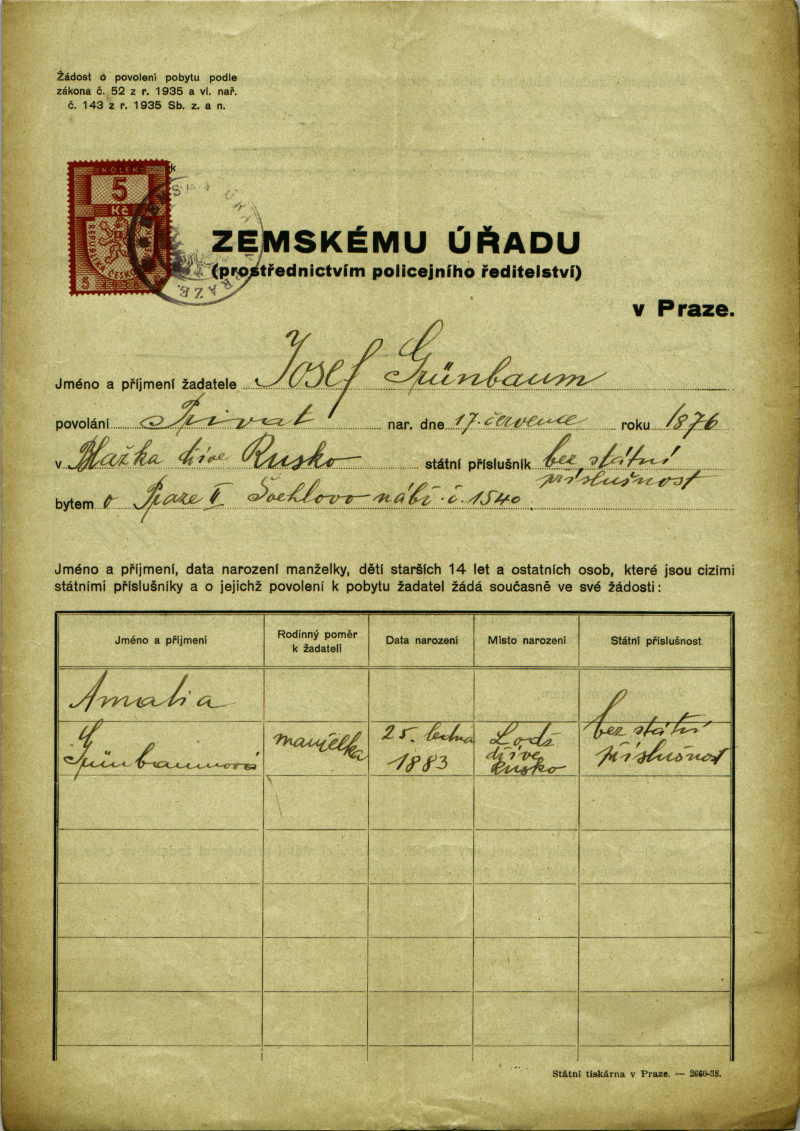 Žádost o povolení pobytu podle
zákona č. 52 z r. 1935 a vl. nař.
č. 143 z r. 1935 Sb. z. a n.
KOLEK
5
Kč
REPUBLIKA ČESKO
5
ZEMSKÉMU ÚŘADU
(prostřednictvím policejního ředitelství)
v Praze.
Jméno a příjmení žadatele Josef Grünbaum
povolání Privat nar. dne 17. července roku 1876
v Blažka dříve Rusko státní příslušník bez státní
příslušnost
bytem v Praze II Švehlovo nábř. č. 1540
Jméno a příjmení, data narození manželky, dětí starších 14 let a ostatních osob, které jsou cizími
státními příslušníky a o jejichž povolení k pobytu žadatel žádá současně ve své žádosti:
Jméno a příjmení Rodinný poměr k žadateli Data narození Místo narození Státní příslušnost
Amalia
Grünbaumová manželka 25. ledna 1883 Lodž dříve Rusko bez státní příslušnost
Státní tiskárna v Praze. — 2660-38.